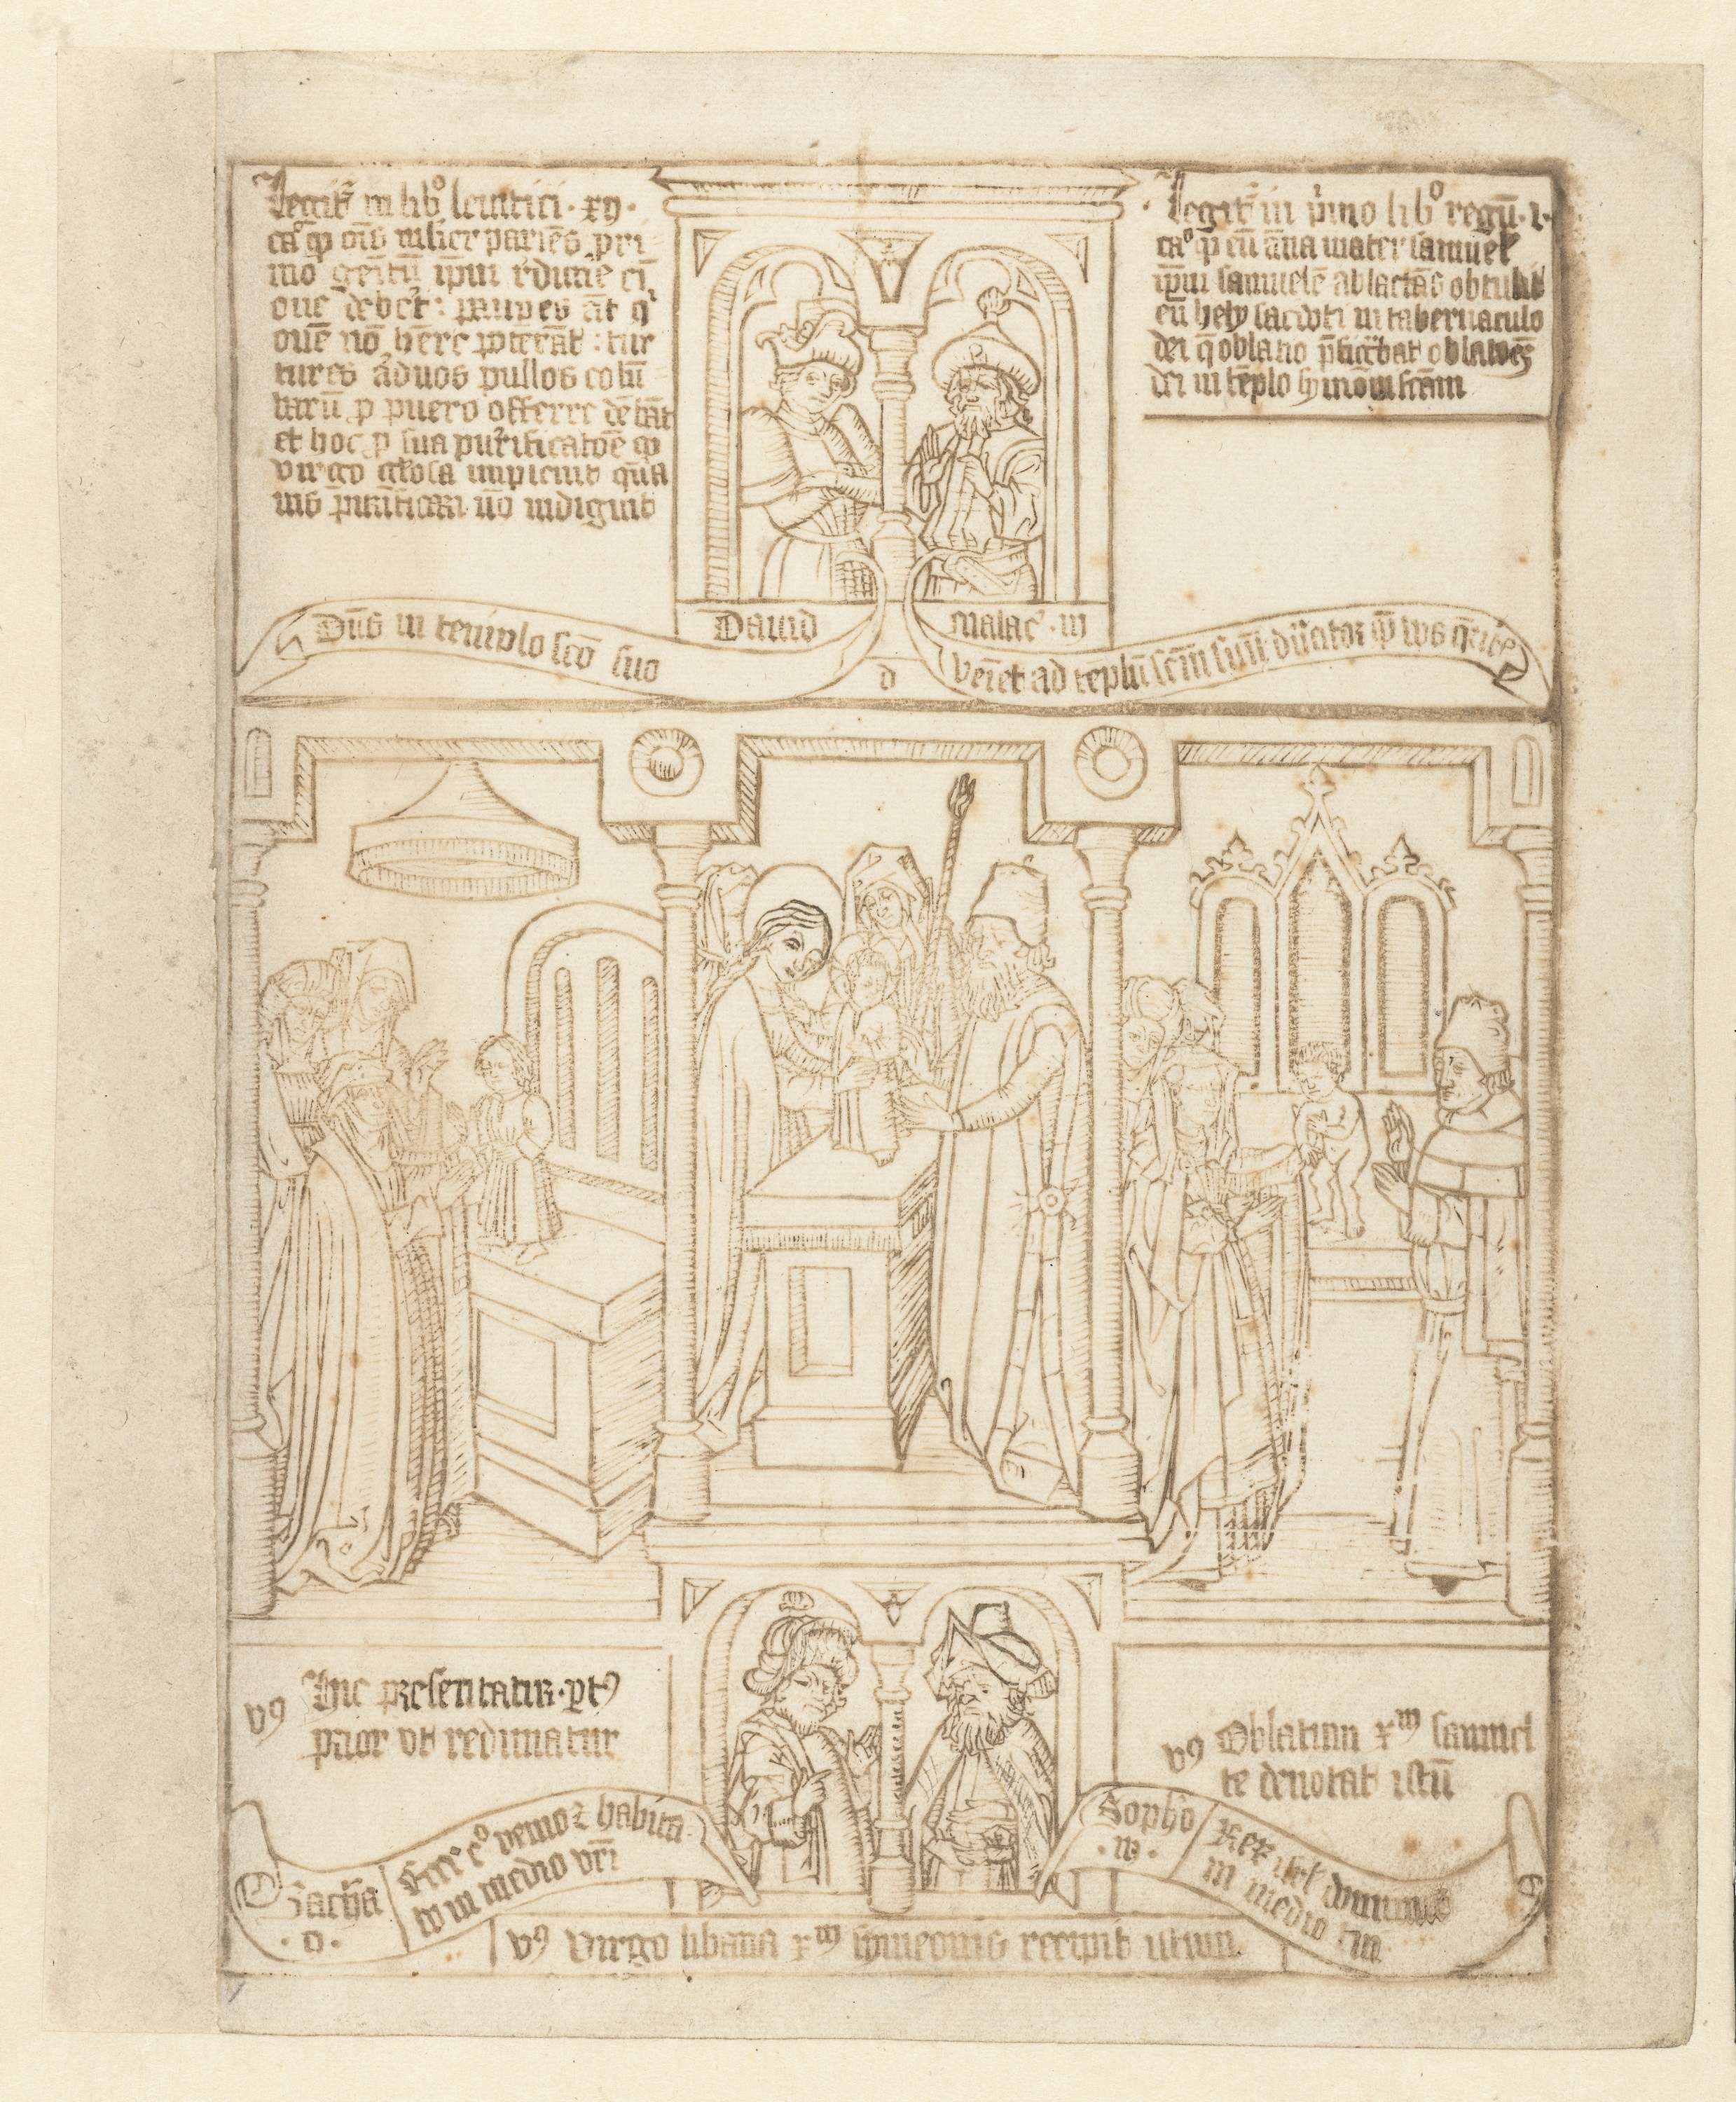 Legit᷑ in libº leuitici · xij ·
caº ꝙ oīs mulier pariēs pri
mo genitū ip̄m redime͛ cū
oue debet : paup͛es āt q'
ouē nō h̄ere poterāt : tur
tures aͧ duos pullos colū
barū ꝓ puero offerre debāt
et hoc ꝓ sua purificatōe ꝙ
virgo gl̄osa impleuit quā
uis purificari nō indiguit
Legit᷑ in p͛mo libº regū · i ·
caº ꝙ cū āna mater samuel
ip̄m samuelē ablactās obtulit
eū hely sacͩoti in tabernaculo
dei q̄ oblatio p̄figͬbat oblatōeʒ
dei in tēplo symōni fcām
Dauid
Malac̓ · iij
Dn̄s in templo scō suo
d
Veīet ad tēplū scm̄ suū dn̄ator
vꝰ Hic presentatur · xp̄tꝰ
prior vt redimatur
vꝰ Oblatum xᵐ samuel
te denotat istū
Zacha
· ij ·
Ecce eº venio ⁊ habita
bo in medio vr̄i
Sopho
· iij ·
Rex isrl dominus
in medio tui
vꝰ Virgo libana xᵐ symeonis recipit istum